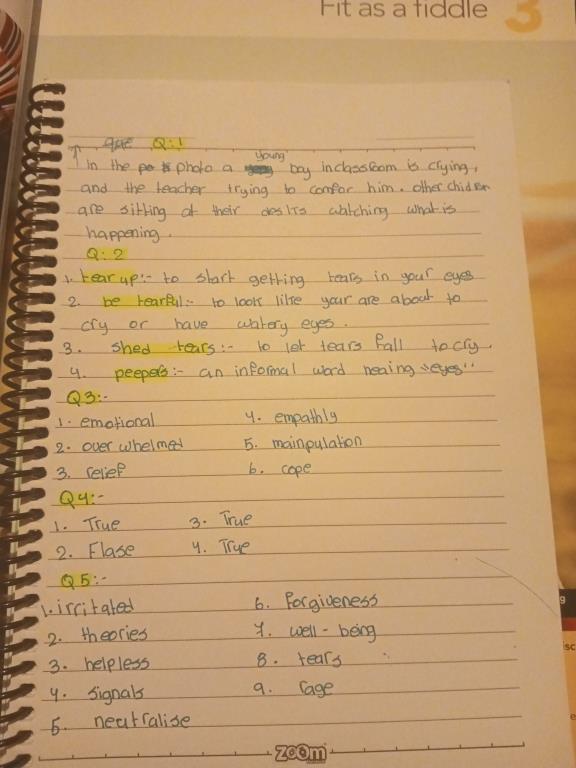 Fit as a fiddle 3
Q:1
young
In the photo a boy in classroom is crying,
and the teacher trying to comfor him. other children
are sitting at their desks watching what is
happening.
Q: 2
1. tear up:- to start getting tears in your eyes
2. be tearful:- to look like your are about to
cry or have watery eyes.
3. shed tears:- to let tears fall to cry.
4. peepers:- an informal word meaning "eyes"
Q3:-
1. emotional 4. empathly
2. over whelmed 5. mainpulation
3. relief 6. cope
Q4:-
1. True 3. True
2. Flase 4. True
Q5:-
1. irritated 6. forgiveness
2. theories 7. well-being
3. helpless 8. tears
4. signals 9. rage
5. neutralise
zoom